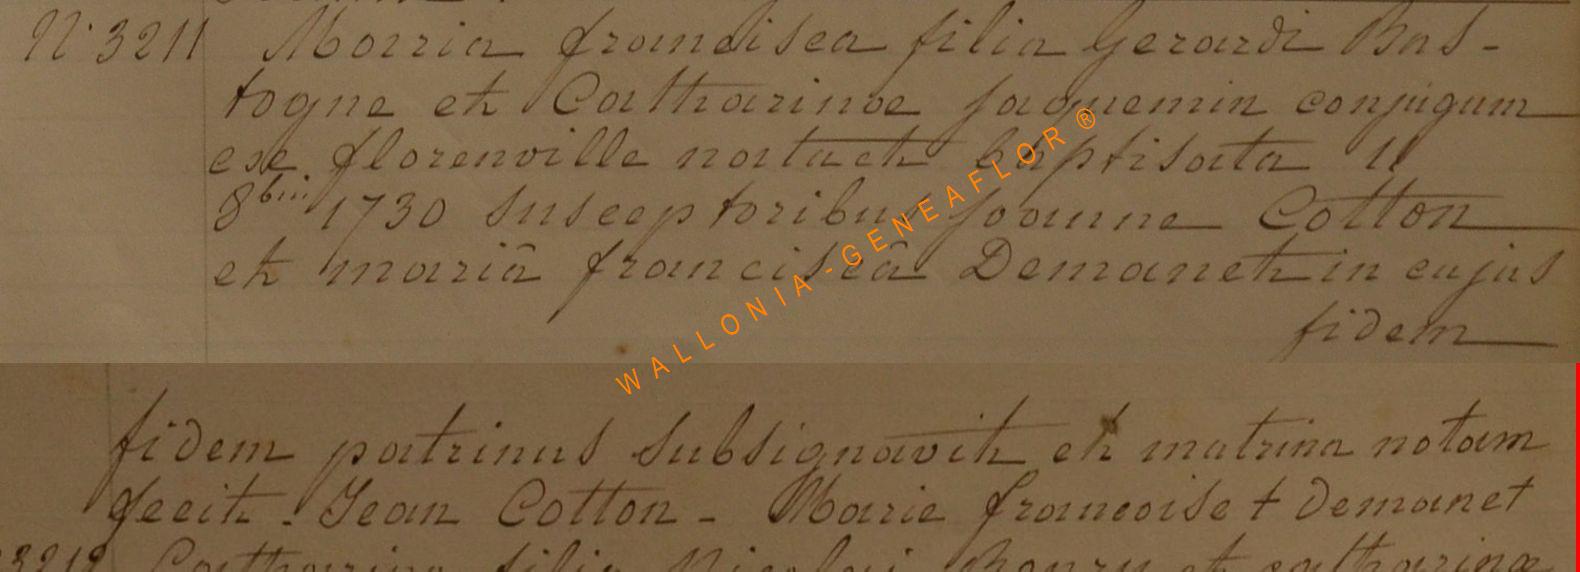 N° 3211 Maria francisca filia Gerardi Bas-
togne et Catharinae Jaquemin conjugum
exe florenville nata et baptisata 11
8bris 1730 susceptoribus Joanne Cotton
et mariâ franciscâ Demanet in cujus
fidem
WALLONIA-GENEAFLOR ®
fidem patrinus subsignavit et matrina notam
fecit. Jean Cotton - Marie francoise + Demanet
3212 Catharina filia Nicolai et catharinae